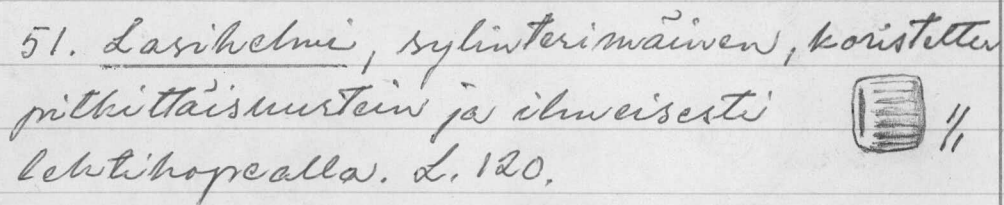 51. Lasihelmi, sylinterimäinen, koristettu
pitkittäisuurtein ja ilmeisesti
lehtihopealla. L. 120.
1/1